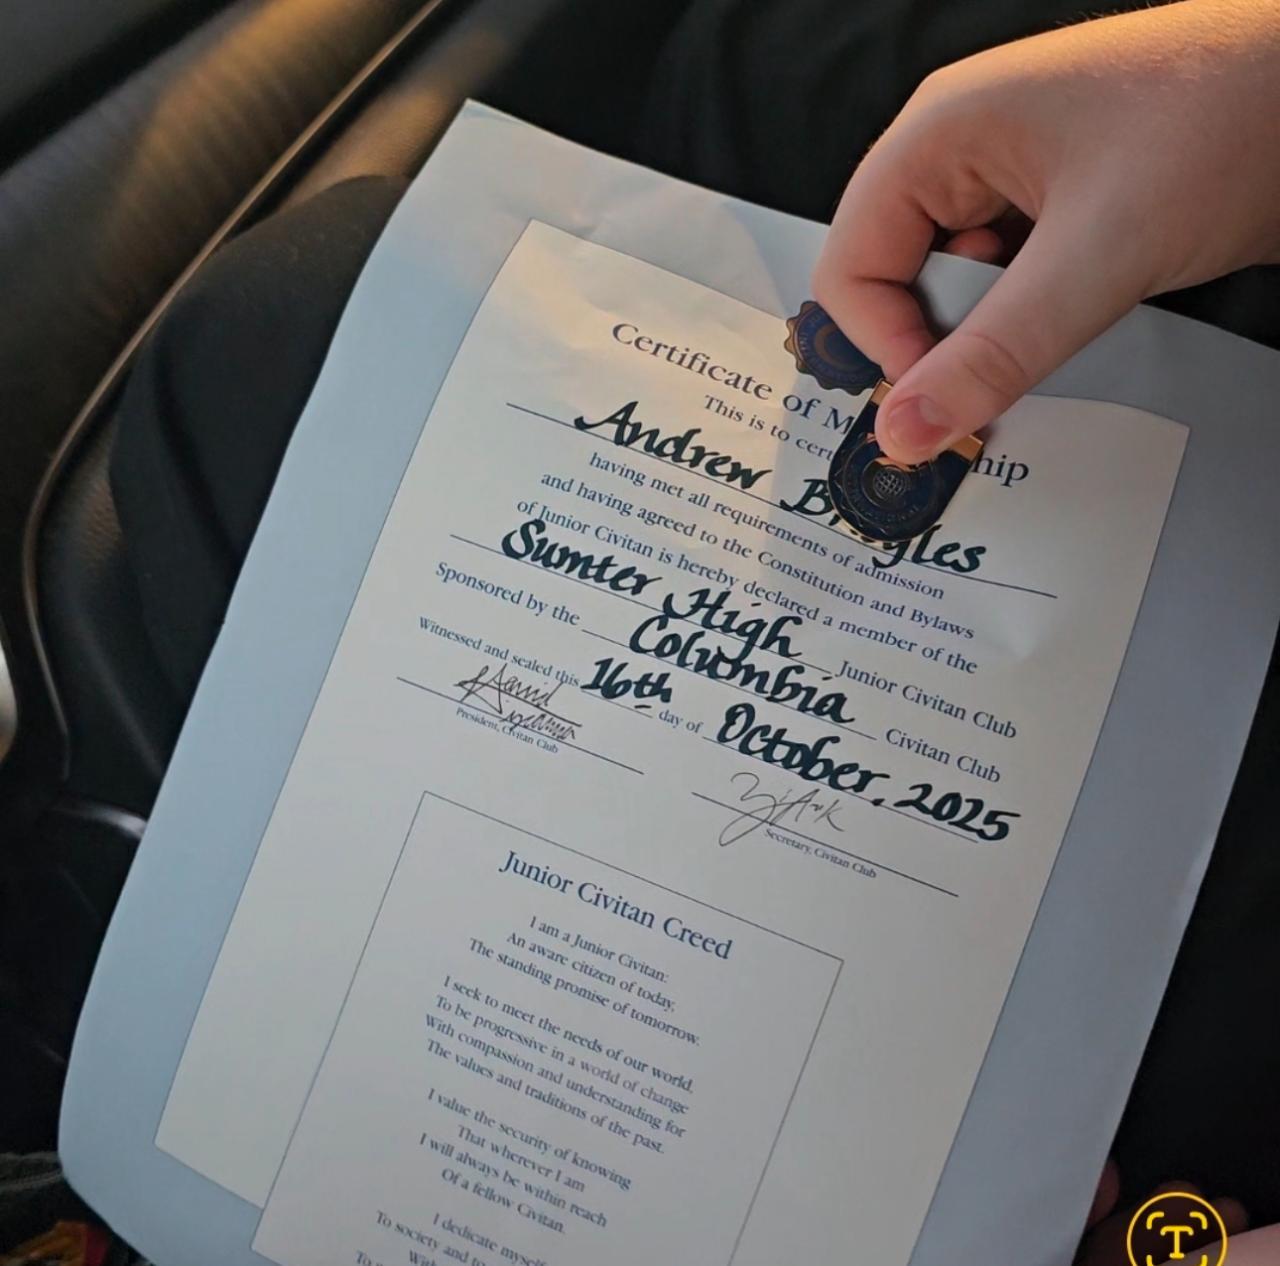 Certificate of M hip
This is to cert
Andrew B yles
having met all requirements of admission
and having agreed to the Constitution and Bylaws
of Junior Civitan is hereby declared a member of the
Sumter High Junior Civitan Club
Sponsored by the Columbia Civitan Club
Witnessed and sealed this 16th day of October, 2025
President, Civitan Club
Secretary, Civitan Club
Junior Civitan Creed
I am a Junior Civitan:
An aware citizen of today,
The standing promise of tomorrow.
I seek to meet the needs of our world,
To be progressive in a world of change
With compassion and understanding for
The values and traditions of the past.
I value the security of knowing
That wherever I am
I will always be within reach
Of a fellow Civitan.
I dedicate myself
To society and to
With
To
T